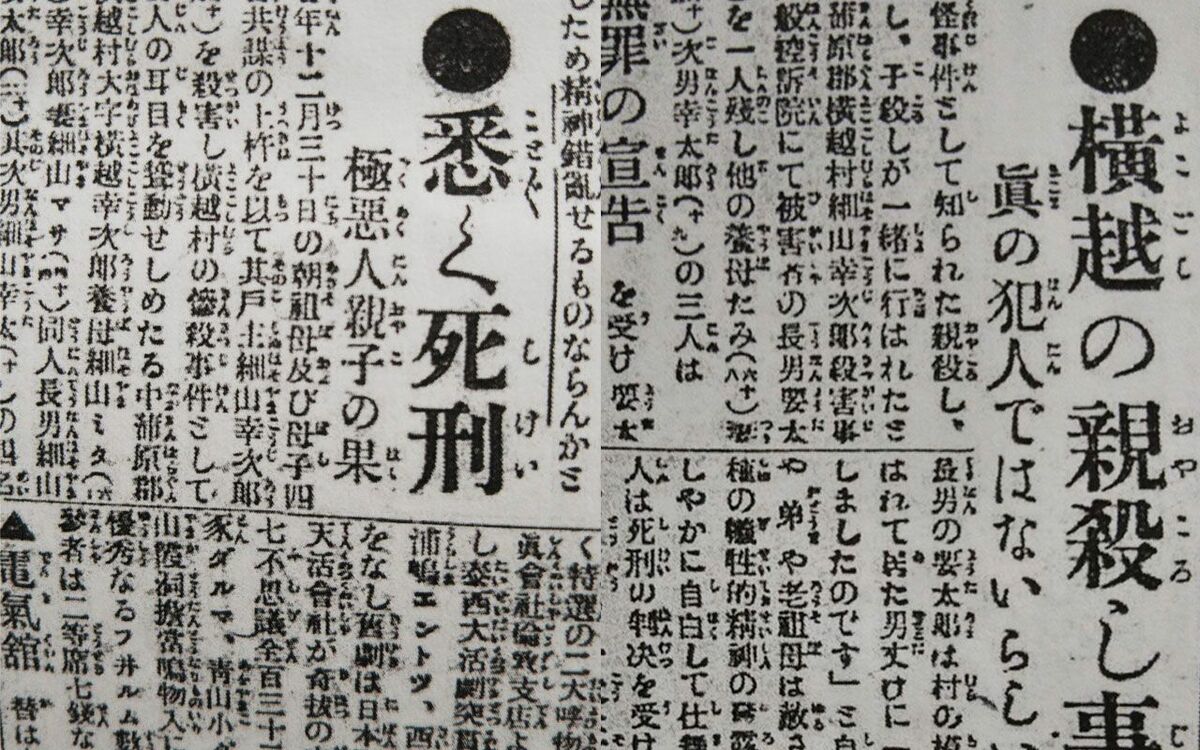 ●横越の親殺し事
眞の犯人ではないらし
怪事件として知られた親殺し、
し、子殺しが一緒に行はれたと
蒲原郡横越村細山幸次郎殺害事
般控訴院にて被害者の長男要太
を一人残し他の養母たみ(六十八)妻
次男幸太郎(十九)の三人は
無罪の宣告を受け要太
長男の要太郎は村の
はれて居た男丈けに
しましたのです」と自
や弟や老祖母は敵
種の犠牲的精神の発露
しやかに自白して仕舞
人は死刑の判決を受け
ため精神錯亂せるものならんかと
●悉く死刑
極惡人親子の果
年十二月三十日の朝祖母及び母子四
共謀の上杵を以て其戸主細山幸次郎
を殺害し横越村の慘殺事件として
人の耳目を聳動せしめたる中蒲原郡
横越村大字横越幸次郎養母細山ミタ(六
幸次郎妻細山マサ(四十)同人長男細山
太郎(二十)其次男細山幸太
く特選の二大呼物
眞會社倫敦支店よ
し泰西大活劇突
浦嶋エントツ、西
をなし舊劇は日本
天活會社が奇拔の
七不思議全百三十
家ダルマ、青山小
山霞洞擔當鳴物入
優秀なるフ井ルム數
参者は二等席七錢な
▲電氣館 替は